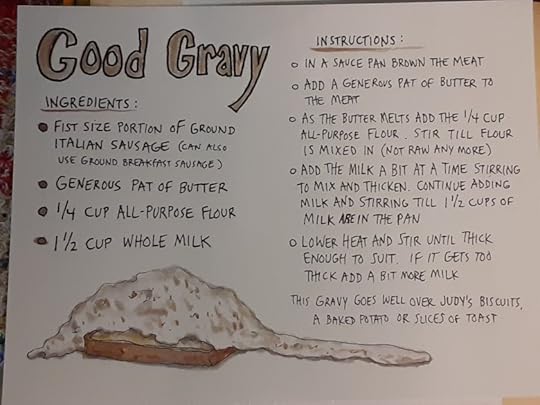 Good Gravy
INGREDIENTS:
FIST SIZE PORTION OF GROUND
ITALIAN SAUSAGE (CAN ALSO
USE GROUND BREAKFAST SAUSAGE)
GENEROUS PAT OF BUTTER
1/4 CUP ALL-PURPOSE FLOUR
1 1/2 CUP WHOLE MILK
INSTRUCTIONS:
IN A SAUCE PAN BROWN THE MEAT
ADD A GENEROUS PAT OF BUTTER TO
THE MEAT
AS THE BUTTER MELTS ADD THE 1/4 CUP
ALL-PURPOSE FLOUR. STIR TILL FLOUR
IS MIXED IN (NOT RAW ANY MORE)
ADD THE MILK A BIT AT A TIME STIRRING
TO MIX AND THICKEN. CONTINUE ADDING
MILK AND STIRRING TILL 1 1/2 CUPS OF
MILK ARE IN THE PAN
LOWER HEAT AND STIR UNTIL THICK
ENOUGH TO SUIT. IF IT GETS TOO
THICK ADD A BIT MORE MILK
THIS GRAVY GOES WELL OVER JUDY'S BISCUITS,
A BAKED POTATO OR SLICES OF TOAST